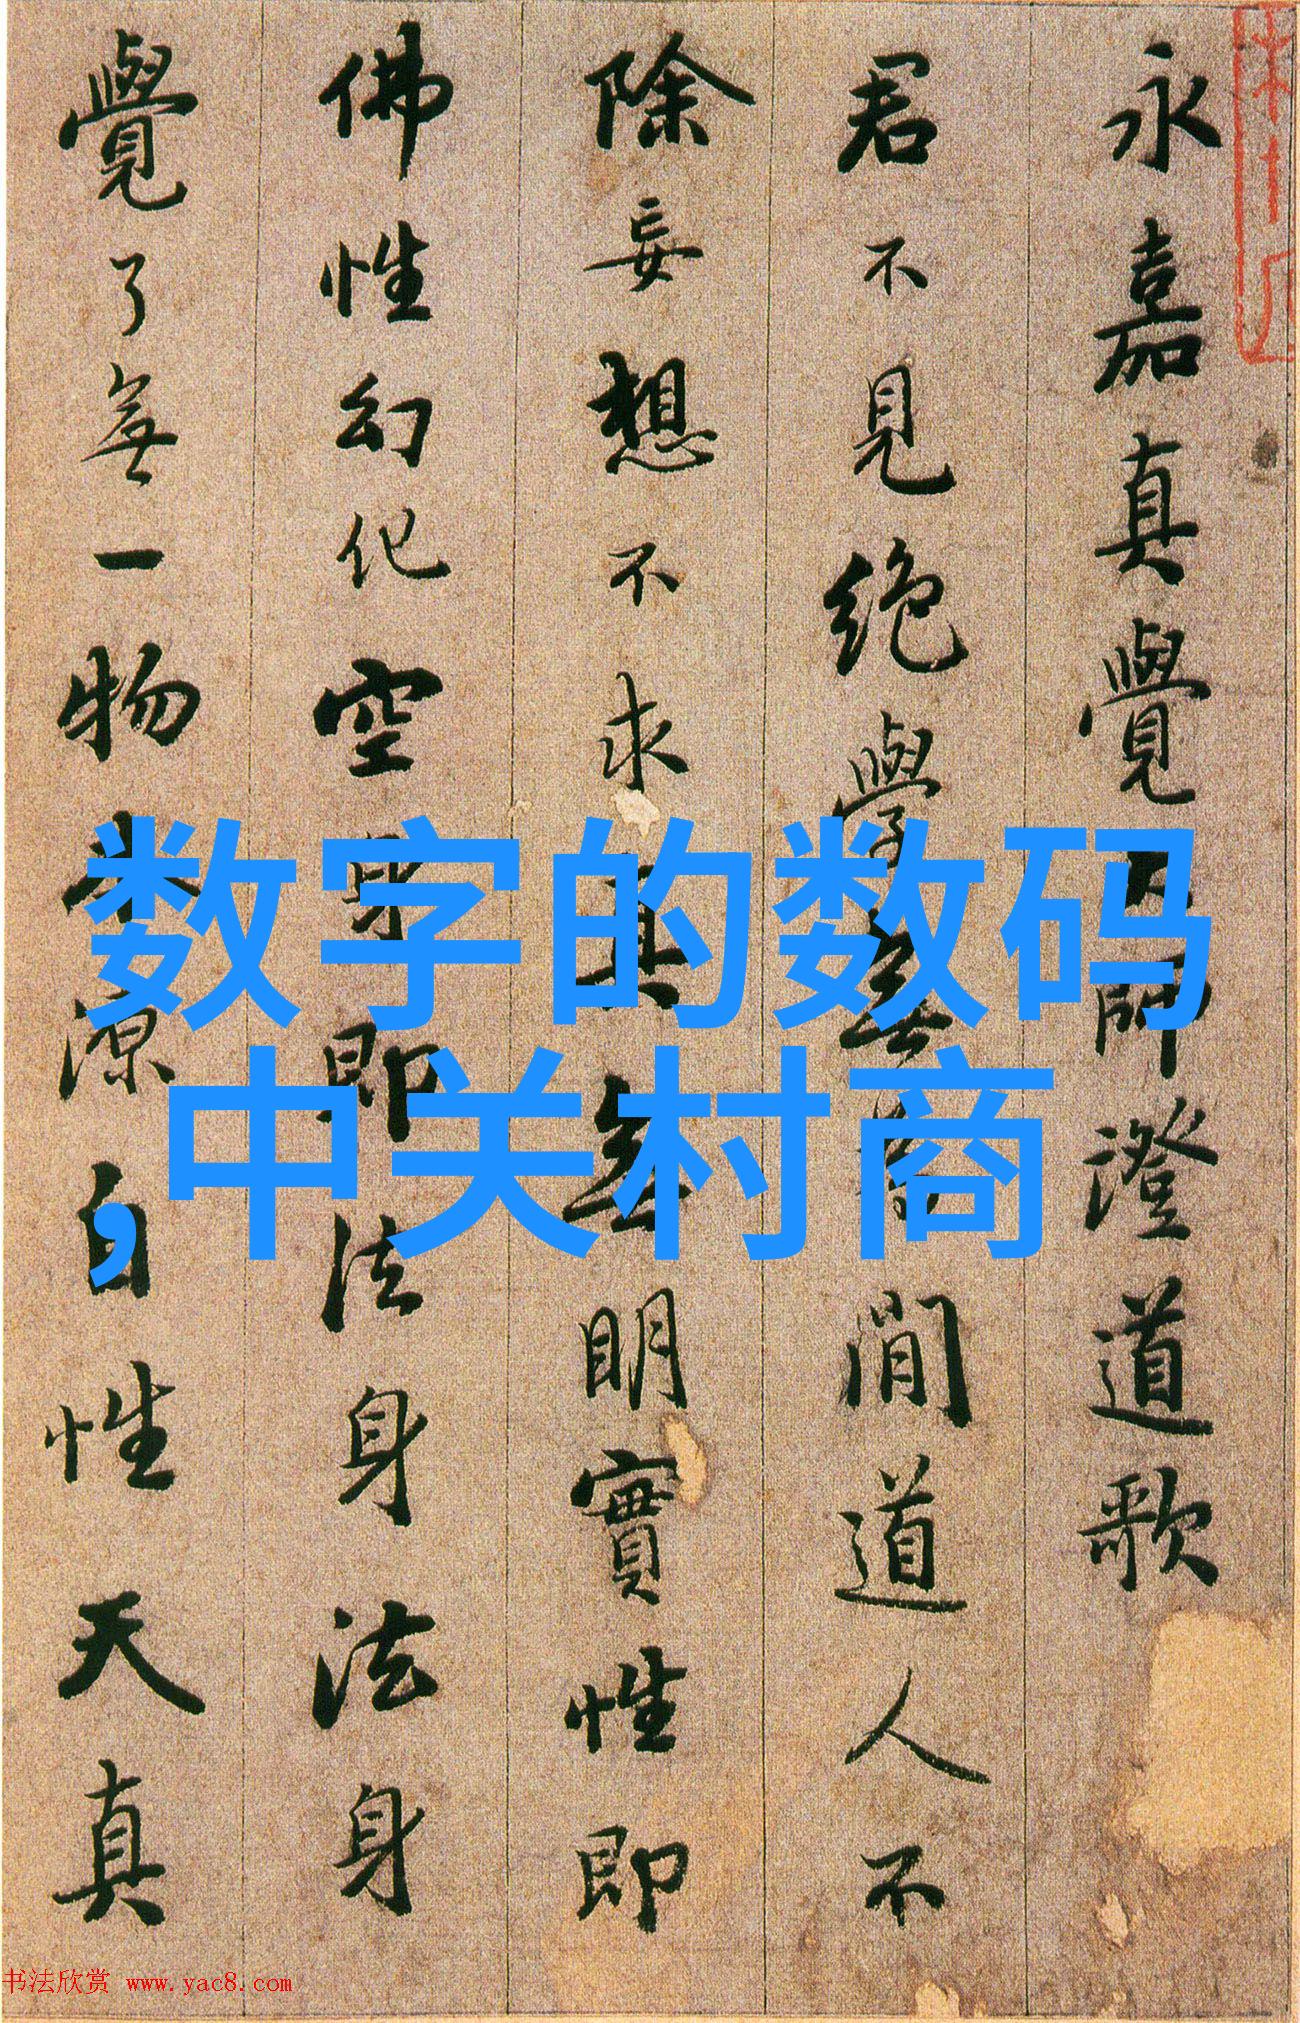 永嘉真覺大師澄道歌
君不見絶學無為閒道人不
除妄想不求真無明實性即
佛性幻化空身即法身法身
覺了無一物本源自性天真
数字的数码
,中关村商
书法欣赏 www.yac8.com